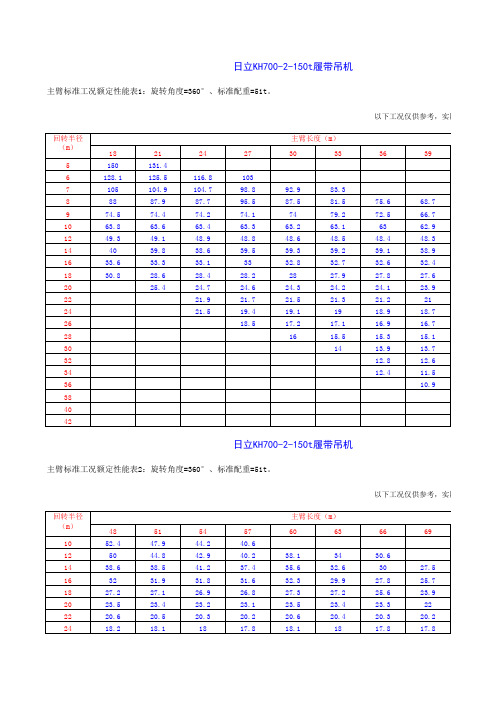 日立KH700-2-150t履带吊机
主臂标准工况额定性能表1：旋转角度=360°、标准配重=51t。
以下工况仅供参考，实
回转半径（m） 主臂长度（m）
18 21 24 27 30 33 36 39
5 150 131.4
6 128.1 125.5 116.8 103
7 105 104.9 104.7 98.8 92.9 83.3
8 88 87.9 87.7 95.5 87.5 81.5 75.6 68.7
9 74.5 74.4 74.2 74.1 74 79.2 72.5 66.7
10 63.8 63.6 63.4 63.3 63.2 63.1 63 62.9
12 49.3 49.1 48.9 48.8 48.6 48.5 48.4 48.3
14 40 39.8 38.6 39.5 39.3 39.2 39.1 38.9
16 33.6 33.3 33.1 33 32.8 32.7 32.6 32.4
18 30.8 28.6 28.4 28.2 28 27.9 27.8 27.6
20 25.4 24.7 24.6 24.3 24.2 24.1 23.9
22 21.9 21.7 21.5 21.3 21.2 21
24 21.5 19.4 19.1 19 18.9 18.7
26 18.5 17.2 17.1 16.9 16.7
28 16 15.5 15.3 15.1
30 14 13.9 13.7
32 12.8 12.6
34 12.4 11.5
36 10.9
38
40
42
日立KH700-2-150t履带吊机
主臂标准工况额定性能表2：旋转角度=360°、标准配重=51t。
以下工况仅供参考，实
回转半径（m） 主臂长度（m）
48 51 54 57 60 63 66 69
10 52.4 47.9 44.2 40.6
12 50 44.8 42.9 40.2 38.1 34 30.6
14 38.6 38.5 41.2 37.4 35.6 32.6 30 27.5
16 32 31.9 31.8 31.6 32.3 29.9 27.8 25.7
18 27.2 27.1 26.9 26.8 27.3 27.2 25.6 23.9
20 23.5 23.4 23.2 23.1 23.5 23.4 23.3 22
22 20.6 20.5 20.3 20.2 20.6 20.4 20.3 20.2
24 18.2 18.1 18 17.8 18.1 18 17.8 17.8